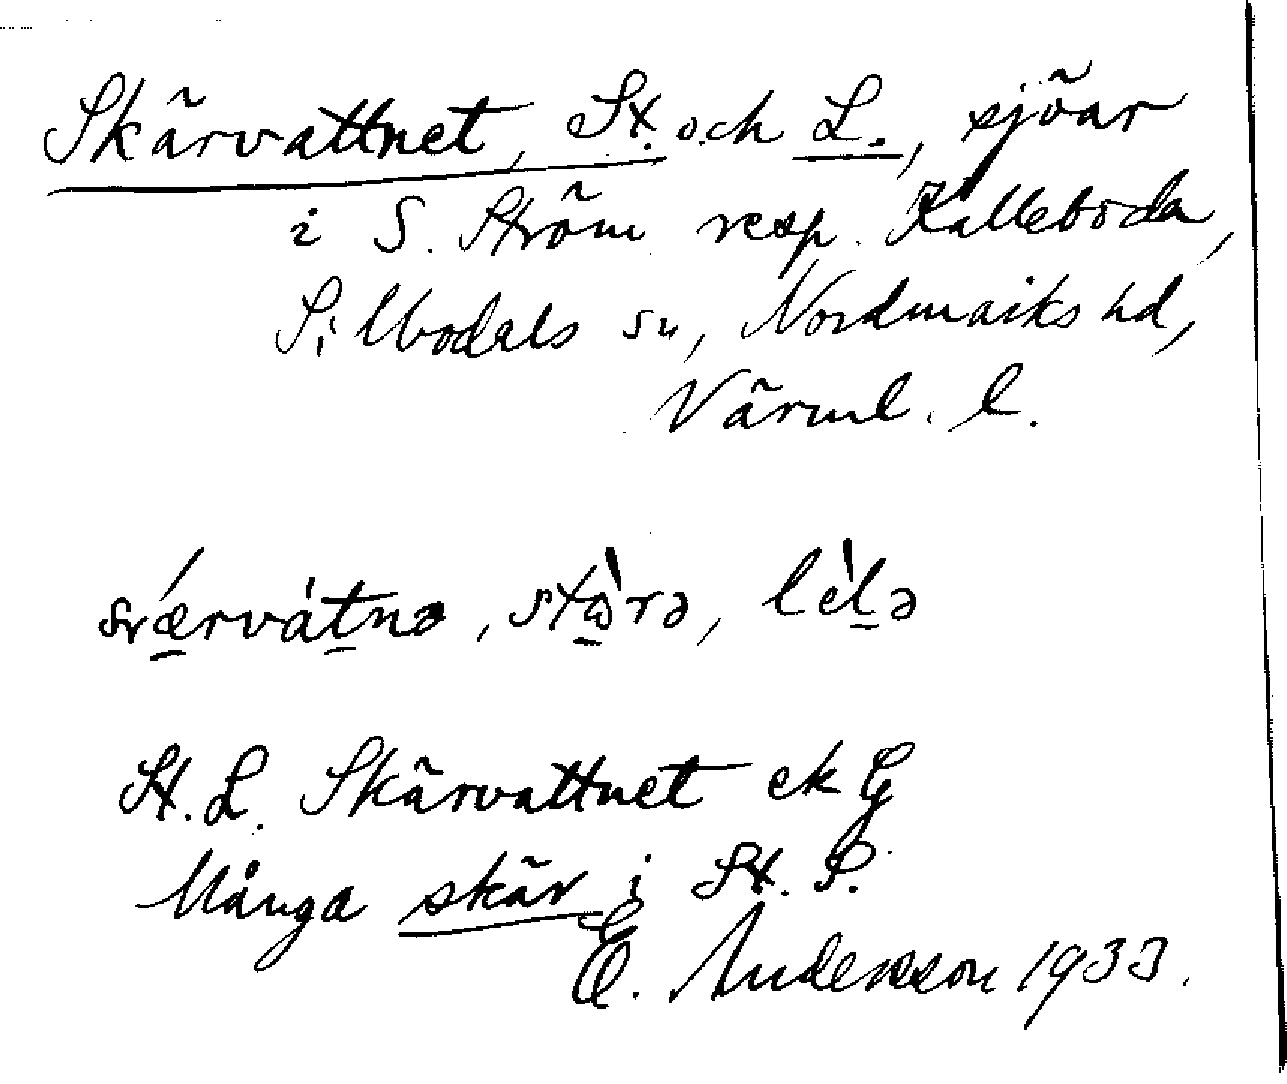 Skärvattnet, St. och L., sjöar
i S. Ström resp. Kalleboda,
Sillbodals sn, Nordmarks hd,
Värml. l.
stora, lela
St. L. Skärvattnet ek G
Många skär i St. S.
E. Andersson 1933.